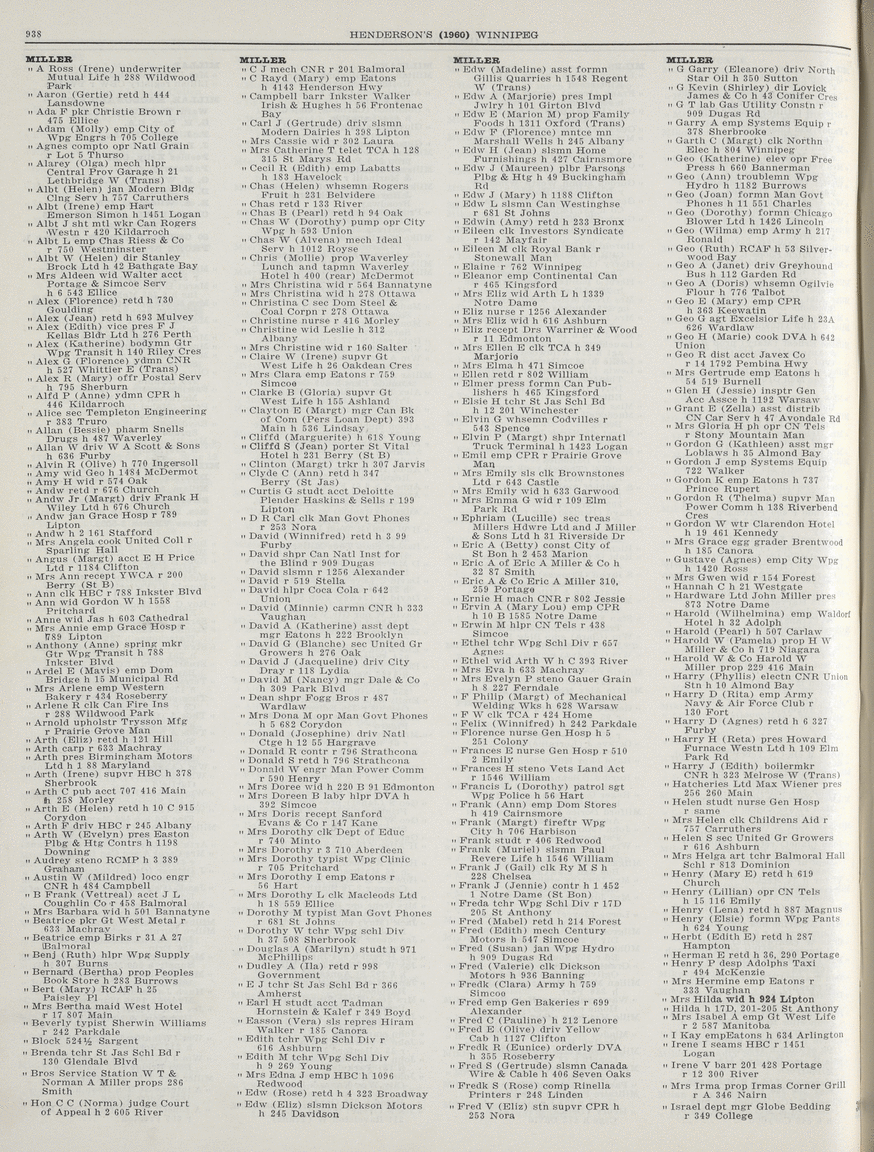 938
HENDERSON'S (1960) WINNIPEG
MILLER
" A Ross (Irene) underwriter
Mutual Life h 288 Wildwood
Park
" Aaron (Gertie) retd h 444
Lansdowne
" Ada F pkr Christie Brown r
475 Ellice
" Adam (Molly) emp City of
Wpg Engrs h 705 College
" Agnes compto opr Natl Grain
r Lot 5 Thurso
" Alarey (Olga) mech hlpr
Central Prov Garage h 21
Lethbridge W (Trans)
" Albt (Helen) jan Modern Bldg
Clng Serv h 757 Carruthers
" Albt (Irene) emp Hart
Emerson Simon h 1451 Logan
" Albt J sht mtl wkr Can Rogers
Westn r 420 Kildarroch
" Albt L emp Chas Riess & Co
r 750 Westminster
" Albt W (Helen) dir Stanley
Brock Ltd h 42 Bathgate Bay
" Mrs Aldeen wid Walter acct
Portage & Simcoe Serv
h 6 543 Ellice
" Alex (Florence) retd h 730
Goulding
" Alex (Jean) retd h 693 Mulvey
" Alex (Edith) vice pres F J
Kellas Bldr Ltd h 276 Perth
" Alex (Katherine) bodymn Gtr
Wpg Transit h 140 Riley Cres
" Alex G (Florence) ydmn CNR
h 527 Whittier E (Trans)
" Alex R (Mary) offr Postal Serv
h 795 Sherburn
" Alfd P (Anne) ydmn CPR h
446 Kildarroch
" Alice sec Templeton Engineering
r 383 Truro
" Allan (Bessie) pharm Snells
Drugs h 487 Waverley
" Allan W driv W A Scott & Sons
h 636 Furby
" Alvin R (Olive) h 770 Ingersoll
" Amy wid Geo h 1484 McDermot
" Amy H wid r 574 Oak
" Andw retd r 676 Church
" Andw Jr (Margt) driv Frank H
Wiley Ltd h 676 Church
" Andw jan Grace Hosp r 789
Lipton
" Andw h 2 161 Stafford
" Mrs Angela cook United Coll r
Sparling Hall
" Angus (Margt) acct E H Price
Ltd r 1184 Clifton
" Mrs Ann recept YWCA r 200
Berry (St B)
" Ann clk HBC r 788 Inkster Blvd
" Ann wid Gordon W h 1558
Pritchard
" Anne wid Jas h 603 Cathedral
" Mrs Annie emp Grace Hosp r
789 Lipton
" Anthony (Anne) spring mkr
Gtr Wpg Transit h 788
Inkster Blvd
" Ardel E (Mavis) emp Dom
Bridge h 15 Municipal Rd
" Mrs Arlene emp Western
Bakery r 434 Roseberry
" Arlene R clk Can Fire Ins
r 288 Wildwood Park
" Arnold upholstr Trysson Mfg
r Prairie Grove Man
" Arth (Eliz) retd h 121 Hill
" Arth carp r 633 Machray
" Arth pres Birmingham Motors
Ltd h 1 88 Maryland
" Arth (Irene) supvr HBC h 378
Sherbrook
" Arth C pub acct 707 416 Main
h 258 Morley
" Arth E (Helen) retd h 10 C 915
Corydon
" Arth F driv HBC r 245 Albany
" Arth W (Evelyn) pres Easton
Plbg & Htg Contrs h 1198
Downing
" Audrey steno RCMP h 3 389
Graham
" Austin W (Mildred) loco engr
CNR h 484 Campbell
" B Frank (Vettreal) acct J L
Coughlin Co r 458 Balmoral
" Mrs Barbara wid h 501 Bannatyne
" Beatrice pkr Gt West Metal r
633 Machray
" Beatrice emp Birks r 31 A 27
Balmoral
" Benj (Ruth) hlpr Wpg Supply
h 307 Burns
" Bernard (Bertha) prop Peoples
Book Store h 283 Burrows
" Bert (Mary) RCAF h 25
Paisley Pl
" Mrs Bertha maid West Hotel
r 17 807 Main
" Beverly typist Sherwin Williams
r 242 Parkdale
" Block 524½ Sargent
" Brenda tchr St Jas Schl Bd r
130 Glendale Blvd
" Bros Service Station W T &
Norman A Miller props 286
Smith
" Hon C C (Norma) judge Court
of Appeal h 2 605 River
MILLER
" C J mech CNR r 201 Balmoral
" C Rayd (Mary) emp Eatons
h 4143 Henderson Hwy
" Campbell barr Inkster Walker
Irish & Hughes h 56 Frontenac
Bay
" Carl J (Gertrude) driv slsmn
Modern Dairies h 398 Lipton
" Mrs Cassie wid r 302 Laura
" Mrs Catherine T telet TCA h 128
315 St Marys Rd
" Cecil R (Edith) emp Labatts
h 183 Havelock
" Chas (Helen) whsemn Rogers
Fruit h 231 Belvidere
" Chas retd r 133 River
" Chas B (Pearl) retd h 94 Oak
" Chas W (Dorothy) pump opr City
Wpg h 593 Union
" Chas W (Alvena) mech Ideal
Serv h 1012 Royse
" Chris (Mollie) prop Waverley
Lunch and tapmn Waverley
Hotel h 400 (rear) McDermot
" Mrs Christina wid r 564 Bannatyne
" Mrs Christina wid h 278 Ottawa
" Christina C sec Dom Steel &
Coal Corpn r 278 Ottawa
" Christine nurse r 416 Morley
" Christine wid Leslie h 312
Albany
" Mrs Christine wid r 160 Salter
" Claire W (Irene) supvr Gt
West Life h 26 Oakdean Cres
" Mrs Clara emp Eatons r 759
Simcoe
" Clarke B (Gloria) supvr Gt
West Life h 155 Ashland
" Clayton E (Margt) mgr Can Bk
of Com (Pers Loan Dept) 393
Main h 536 Lindsay
" Cliffd (Marguerite) h 618 Young
" Cliffd S (Jean) porter St Vital
Hotel h 231 Berry (St B)
" Clinton (Margt) trkr h 307 Jarvis
" Clyde C (Ann) retd h 347
Berry (St Jas)
" Curtis G studt acct Deloitte
Plender Haskins & Sells r 199
Lipton
" D R Carl clk Man Govt Phones
r 253 Nora
" David (Winnifred) retd h 3 99
Furby
" David shpr Can Natl Inst for
the Blind r 909 Dugas
" David slsmn r 1256 Alexander
" David r 519 Stella
" David hlpr Coca Cola r 642
Union
" David (Minnie) carmn CNR h 333
Vaughan
" David A (Katherine) asst dept
mgr Eatons h 222 Brooklyn
" David G (Blanche) sec United Gr
Growers h 276 Oak
" David J (Jacqueline) driv City
Dray r 118 Lydia
" David M (Nancy) mgr Dale & Co
h 309 Park Blvd
" Dean shpr Fogg Bros r 487
Wardlaw
" Mrs Dona M opr Man Govt Phones
h 5 682 Corydon
" Donald (Josephine) driv Natl
Ctge h 12 55 Hargrave
" Donald R contr r 796 Strathcona
" Donald S retd h 796 Strathcona
" Donald W engr Man Power Comm
r 590 Henry
" Mrs Doree wid h 220 B 91 Edmonton
" Mrs Doreen B laby hlpr DVA h
392 Simcoe
" Mrs Doris recept Sanford
Evans & Co r 147 Kane
" Mrs Dorothy clk Dept of Educ
r 740 Minto
" Mrs Dorothy r 3 710 Aberdeen
" Mrs Dorothy typist Wpg Clinic
r 705 Pritchard
" Mrs Dorothy I emp Eatons r
56 Hart
" Mrs Dorothy L clk Macleods Ltd
h 18 559 Ellice
" Dorothy M typist Man Govt Phones
r 681 St Johns
" Dorothy W tchr Wpg schl Div
h 37 508 Sherbrook
" Douglas A (Marilyn) studt h 971
McPhillips
" Dudley A (Ila) retd r 998
Government
" E J tchr St Jas Schl Bd r 366
Amherst
" Earl H studt acct Tadman
Hornstein & Kalef r 349 Boyd
" Easson (Vera) sls repres Hiram
Walker r 185 Canora
" Edith tchr Wpg Schl Div r
616 Ashburn
" Edith M tchr Wpg Schl Div
h 9 269 Young
" Mrs Edna J emp HBC h 1096
Redwood
" Edw (Rose) retd h 4 323 Broadway
" Edw (Eliz) slsmn Dickson Motors
h 245 Davidson
MILLER
" Edw (Madeline) asst formn
Gillis Quarries h 1548 Regent
W (Trans)
" Edw A (Marjorie) pres Impl
Jwlry h 101 Girton Blvd
" Edw E (Marion M) prop Family
Foods h 1311 Oxford (Trans)
" Edw F (Florence) mntce mn
Marshall Wells h 245 Albany
" Edw H (Jean) slsmn Home
Furnishings h 427 Cairnsmore
" Edw J (Maureen) plbr Parsons
Plbg & Htg h 49 Buckingham
Rd
" Edw J (Mary) h 1188 Clifton
" Edw L slsmn Can Westinghse
r 681 St Johns
" Edwin (Amy) retd h 233 Bronx
" Eileen clk Investors Syndicate
r 142 Mayfair
" Eileen M clk Royal Bank r
Stonewall Man
" Elaine r 762 Winnipeg
" Eleanor emp Continental Can
r 465 Kingsford
" Mrs Eliz wid Arth L h 1339
Notre Dame
" Eliz nurse r 1256 Alexander
" Mrs Eliz wid h 616 Ashburn
" Eliz recept Drs Warriner & Wood
r 11 Edmonton
" Mrs Ellen E clk TCA h 349
Marjorie
" Mrs Elma h 471 Simcoe
" Ellen retd r 802 William
" Elmer press formn Can Pub-
lishers h 465 Kingsford
" Elsie H tchr St Jas Schl Bd
h 12 201 Winchester
" Elvin G whsemn Codvilles r
543 Spence
" Elvin P (Margt) shpr Internatl
Truck Terminal h 1423 Logan
" Emil emp CPR r Prairie Grove
Man
" Mrs Emily sls clk Brownstones
Ltd r 643 Castle
" Mrs Emily wid h 633 Garwood
" Mrs Emma G wid r 109 Elm
Park Rd
" Ephriam (Lucille) sec treas
Millers Hdwre Ltd and J Miller
& Sons Ltd h 31 Riverside Dr
" Eric A (Betty) const City of
St Bon h 2 453 Marion
" Eric A of Eric A Miller & Co h
32 87 Smith
" Eric A & Co Eric A Miller 310,
259 Portage
" Ernie H mach CNR r 802 Jessie
" Ervin A (Mary Lou) emp CPR
h 10 B 1585 Notre Dame
" Erwin M hlpr CN Tels r 438
Simcoe
" Ethel tchr Wpg Schl Div r 657
Agnes
" Ethel wid Arth W h C 393 River
" Mrs Eva h 633 Machray
" Mrs Evelyn P steno Gauer Grain
h 8 227 Ferndale
" F Philip (Margt) of Mechanical
Welding Wks h 628 Warsaw
" F W clk TCA r 424 Home
" Felix (Winnifred) h 242 Parkdale
" Florence nurse Gen Hosp h 5
251 Colony
" Frances E nurse Gen Hosp r 510
2 Emily
" Frances H steno Vets Land Act
r 1546 William
" Francis L (Dorothy) patrol sgt
Wpg Police h 56 Hart
" Frank (Ann) emp Dom Stores
h 419 Cairnsmore
" Frank (Margt) fireftr Wpg
City h 706 Harbison
" Frank studt r 406 Redwood
" Frank (Muriel) slsmn Paul
Revere Life h 1546 William
" Frank J (Gail) clk Ry M S h
228 Chelsea
" Frank J (Jennie) contr h 1 452
1 Notre Dame (St Bon)
" Freda tchr Wpg Schl Div r 17D
205 St Anthony
" Fred (Mabel) retd h 214 Forest
" Fred (Edith) mech Century
Motors h 547 Simcoe
" Fred (Susan) jan Wpg Hydro
h 909 Dugas Rd
" Fred (Valerie) clk Dickson
Motors h 936 Banning
" Fredk (Clara) Army h 759
Simcoe
" Fred emp Gen Bakeries r 699
Alexander
" Fred C (Pauline) h 212 Lenore
" Fred E (Olive) driv Yellow
Cab h 1127 Clifton
" Fredk R (Eunice) orderly DVA
h 355 Roseberry
" Fred S (Gertrude) slsmn Canada
Wire & Cable h 406 Seven Oaks
" Fredk S (Rose) comp Rinella
Printers r 248 Linden
" Fred V (Eliz) stn supvr CPR h
253 Nora
MILLER
" G Garry (Eleanore) driv North
Star Oil h 350 Sutton
" G Kevin (Shirley) dir Lovick
James & Co h 43 Conifer Cres
" G T lab Gas Utility Constn r
909 Dugas Rd
" Garry A emp Systems Equip r
378 Sherbrooke
" Garth C (Margt) clk Northn
Elec h 804 Winnipeg
" Geo (Katherine) elev opr Free
Press h 669 Bannerman
" Geo (Ann) troublemn Wpg
Hydro h 1182 Burrows
" Geo (Joan) formn Man Govt
Phones h 11 551 Charles
" Geo (Dorothy) formn Chicago
Blower Ltd h 1426 Lincoln
" Geo (Wilma) emp Army h 217
Ronald
" Geo (Ruth) RCAF h 53 Silver-
wood Bay
" Geo A (Janet) driv Greyhound
Bus h 112 Garden Rd
" Geo A (Doris) whsemn Ogilvie
Flour h 776 Talbot
" Geo E (Mary) emp CPR
h 363 Keewatin
" Geo G agt Excelsior Life h 23A
626 Wardlaw
" Geo H (Marie) cook DVA h 642
Union
" Geo R dist acct Javex Co
r 14 1792 Pembina Hwy
" Mrs Gertrude emp Eatons h
54 519 Burnell
" Glen H (Jessie) insptr Gen
Acc Assce h 1192 Warsaw
" Grant E (Zella) asst distrib
CN Car Serv h 47 Avondale Rd
" Mrs Gloria H ph opr CN Tels
r Stony Mountain Man
" Gordon G (Kathleen) asst mgr
Loblaws h 35 Almond Bay
" Gordon J emp Systems Equip
722 Walker
" Gordon K emp Eatons h 737
Prince Rupert
" Gordon R (Thelma) supvr Man
Power Comm h 138 Riverbend
Cres
" Gordon W wtr Clarendon Hotel
h 19 461 Kennedy
" Mrs Grace egg grader Brentwood
h 185 Canora
" Gustave (Agnes) emp City Wpg
h 1420 Ross
" Mrs Gwen wid r 154 Forest
" Hannah C h 21 Westgate
" Hardware Ltd John Miller pres
873 Notre Dame
" Harold (Wilhelmina) emp Waldorf
Hotel h 32 Adolph
" Harold (Pearl) h 507 Carlaw
" Harold W (Pamela) prop H W
Miller & Co h 719 Niagara
" Harold W & Co Harold W
Miller prop 229 416 Main
" Harry (Phyllis) electn CNR Union
Stn h 10 Almond Bay
" Harry D (Rita) emp Army
Navy & Air Force Club r
130 Fort
" Harry D (Agnes) retd h 6 327
Furby
" Harry H (Reta) pres Howard
Furnace Westn Ltd h 109 Elm
Park Rd
" Harry J (Edith) boilermkr
CNR h 323 Melrose W (Trans)
" Hatcheries Ltd Max Wiener pres
256 260 Main
" Helen studt nurse Gen Hosp
r same
" Mrs Helen clk Childrens Aid r
757 Carruthers
" Helen S sec United Gr Growers
r 616 Ashburn
" Mrs Helga art tchr Balmoral Hall
Schl r 813 Dominion
" Henry (Mary E) retd h 619
Church
" Henry (Lillian) opr CN Tels
h 15 116 Emily
" Henry (Lena) retd h 887 Magnus
" Henry (Elsie) formn Wpg Pants
h 624 Young
" Herbt (Edith E) retd h 287
Hampton
" Herman E retd h 36, 290 Portage
" Henry P desp Adolphs Taxi
r 494 McKenzie
" Mrs Hermine emp Eatons r
333 Vaughan
" Mrs Hilda wid h 924 Lipton
" Hilda h 17D, 201-205 St Anthony
" Mrs Isabel A emp Gt West Life
r 2 587 Manitoba
" I Kay empEatons h 634 Arlington
" Irene I seams HBC r 1451
Logan
" Irene V barr 201 428 Portage
r 12 300 River
" Mrs Irma prop Irmas Corner Grill
r A 346 Nairn
" Israel dept mgr Globe Bedding
r 349 College